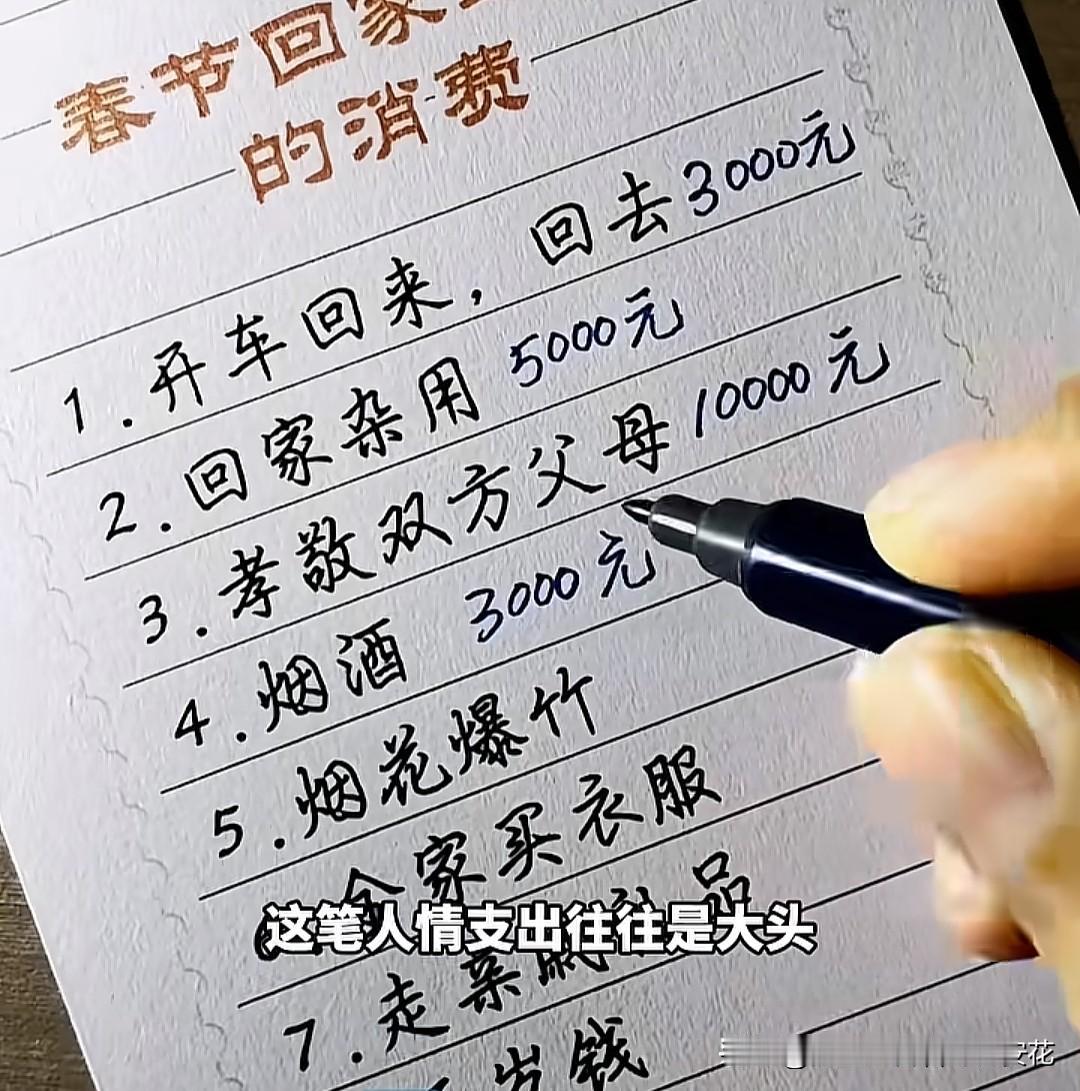 春节回家
的消费
1.开车回来,回去3000元
2.回家杂用 5000元
3.孝敬双方父母10000元
4.烟酒 3000元
5.烟花爆竹
全家买衣服
这笔人情支出往往是大头
7.走亲戚礼品
岁钱
花